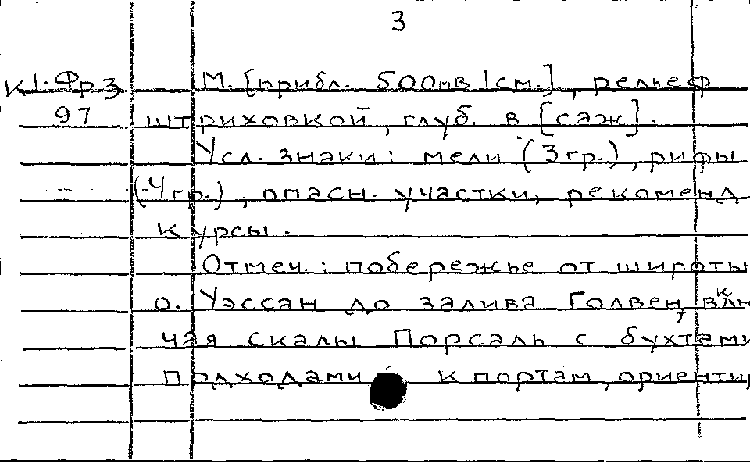 3
К 1-Фр.3 М. [прибл. 500мв 1см.], рельеф
97 штриховкой, глуб. в [саж].
Усл. знаки: мели (3гр.), рифы
(-4гр.), опасн. участки, рекоменд
курсы.
Отмеч.: побережье от широты
о. Уэссан до залива Голвен, вклю
чая скалы Порсаль с бухтами
подходами к портам, ориентир